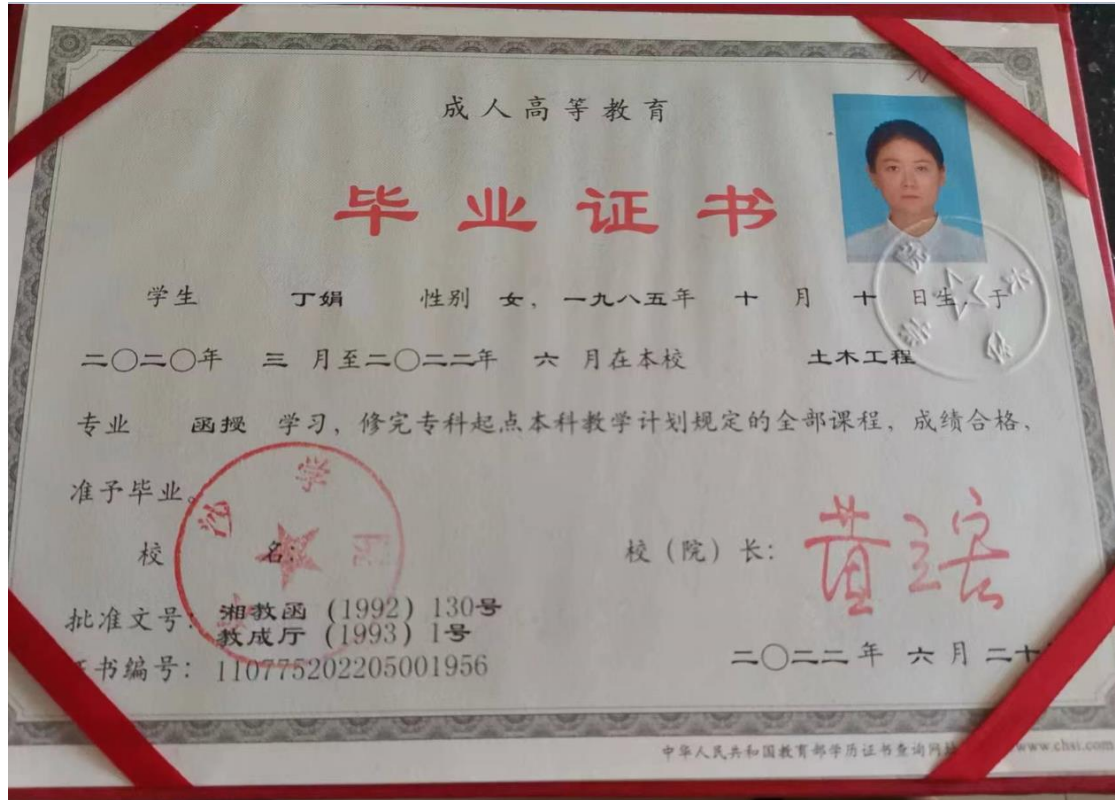 成人高等教育
毕业证书
学生 丁娟 性别 女，一九八五年 十 月 十 日生，于
二〇二〇年 三 月至二〇二二年 六 月在本校 土木工程
专业 函授 学习，修完专科起点本科教学计划规定的全部课程，成绩合格，
准予毕业。
校 名：
沙学院
校（院）长：
批准文号：湘教函（1992）130号
教成厅（1993）1号
书编号：110775202205001956
二〇二二年 六月二十
中华人民共和国教育部学历证书查询网 www.chsi.com